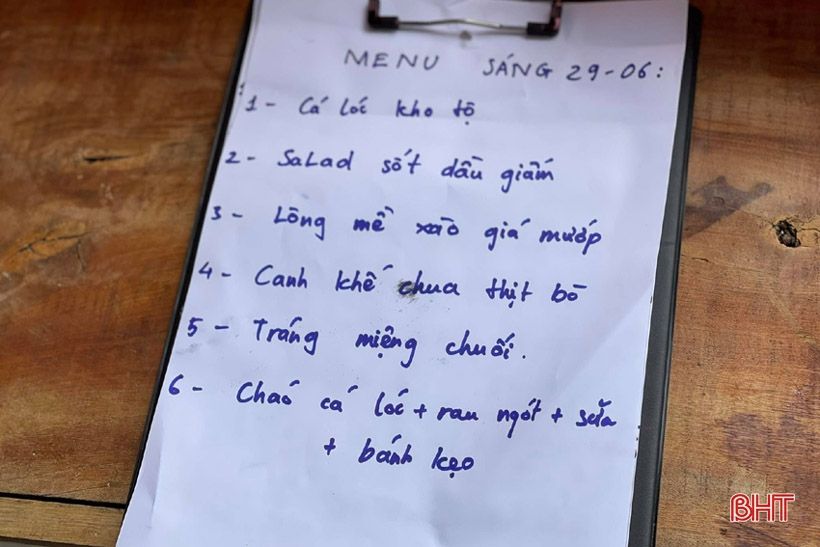 MENU SÁNG 29-06:
1- Cá lóc kho tộ
2- SaLad sốt dầu giấm
3- Lòng mề xào giá mướp
4- Canh khế chua thịt bò
5- Tráng miệng chuối.
6- Cháo cá lóc + rau ngót + sữa
+ bánh kẹo
BHT